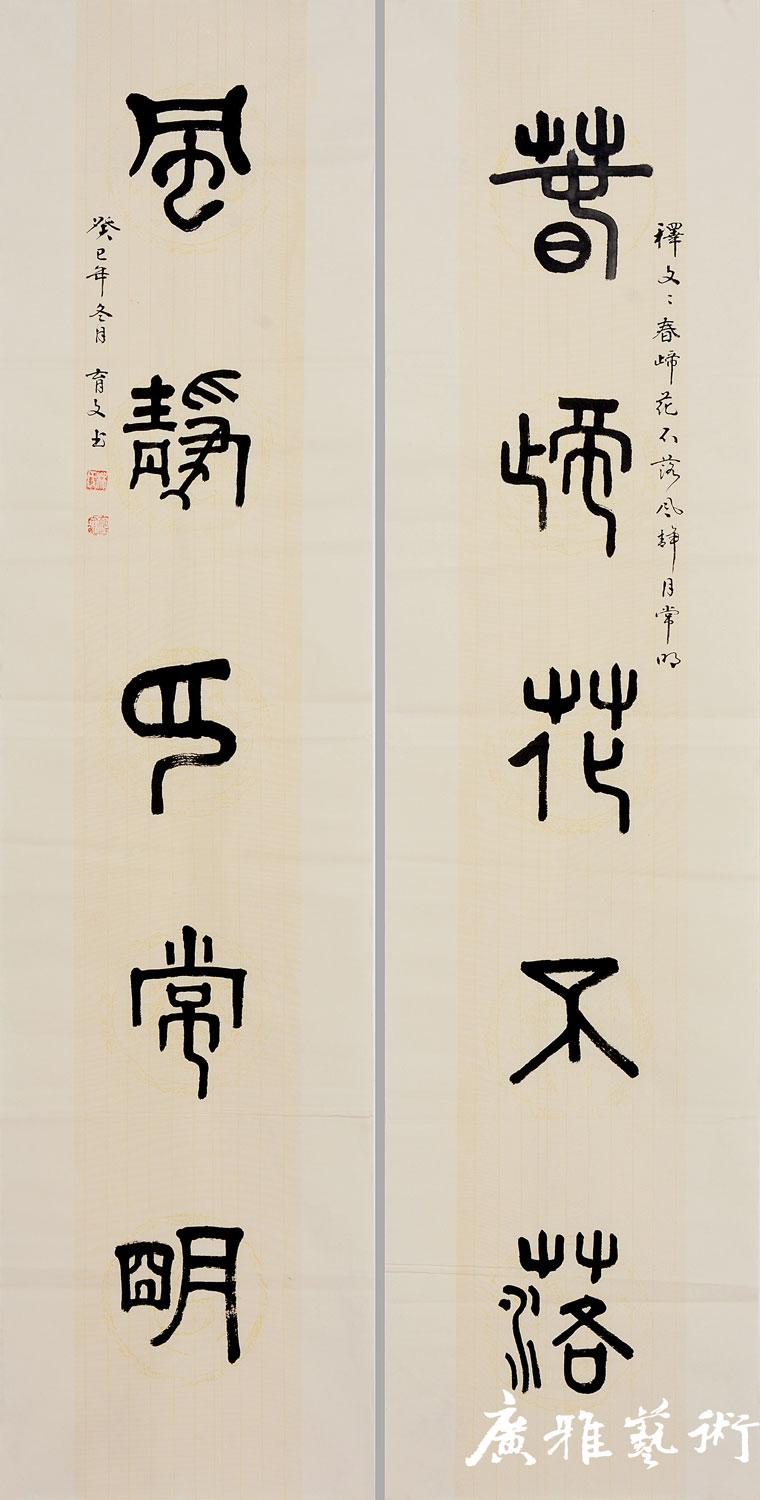 春啼花不落
釋文：春啼花不落風静月常明
風靜月常明
癸巳年冬月 育文书
廣雅藝術